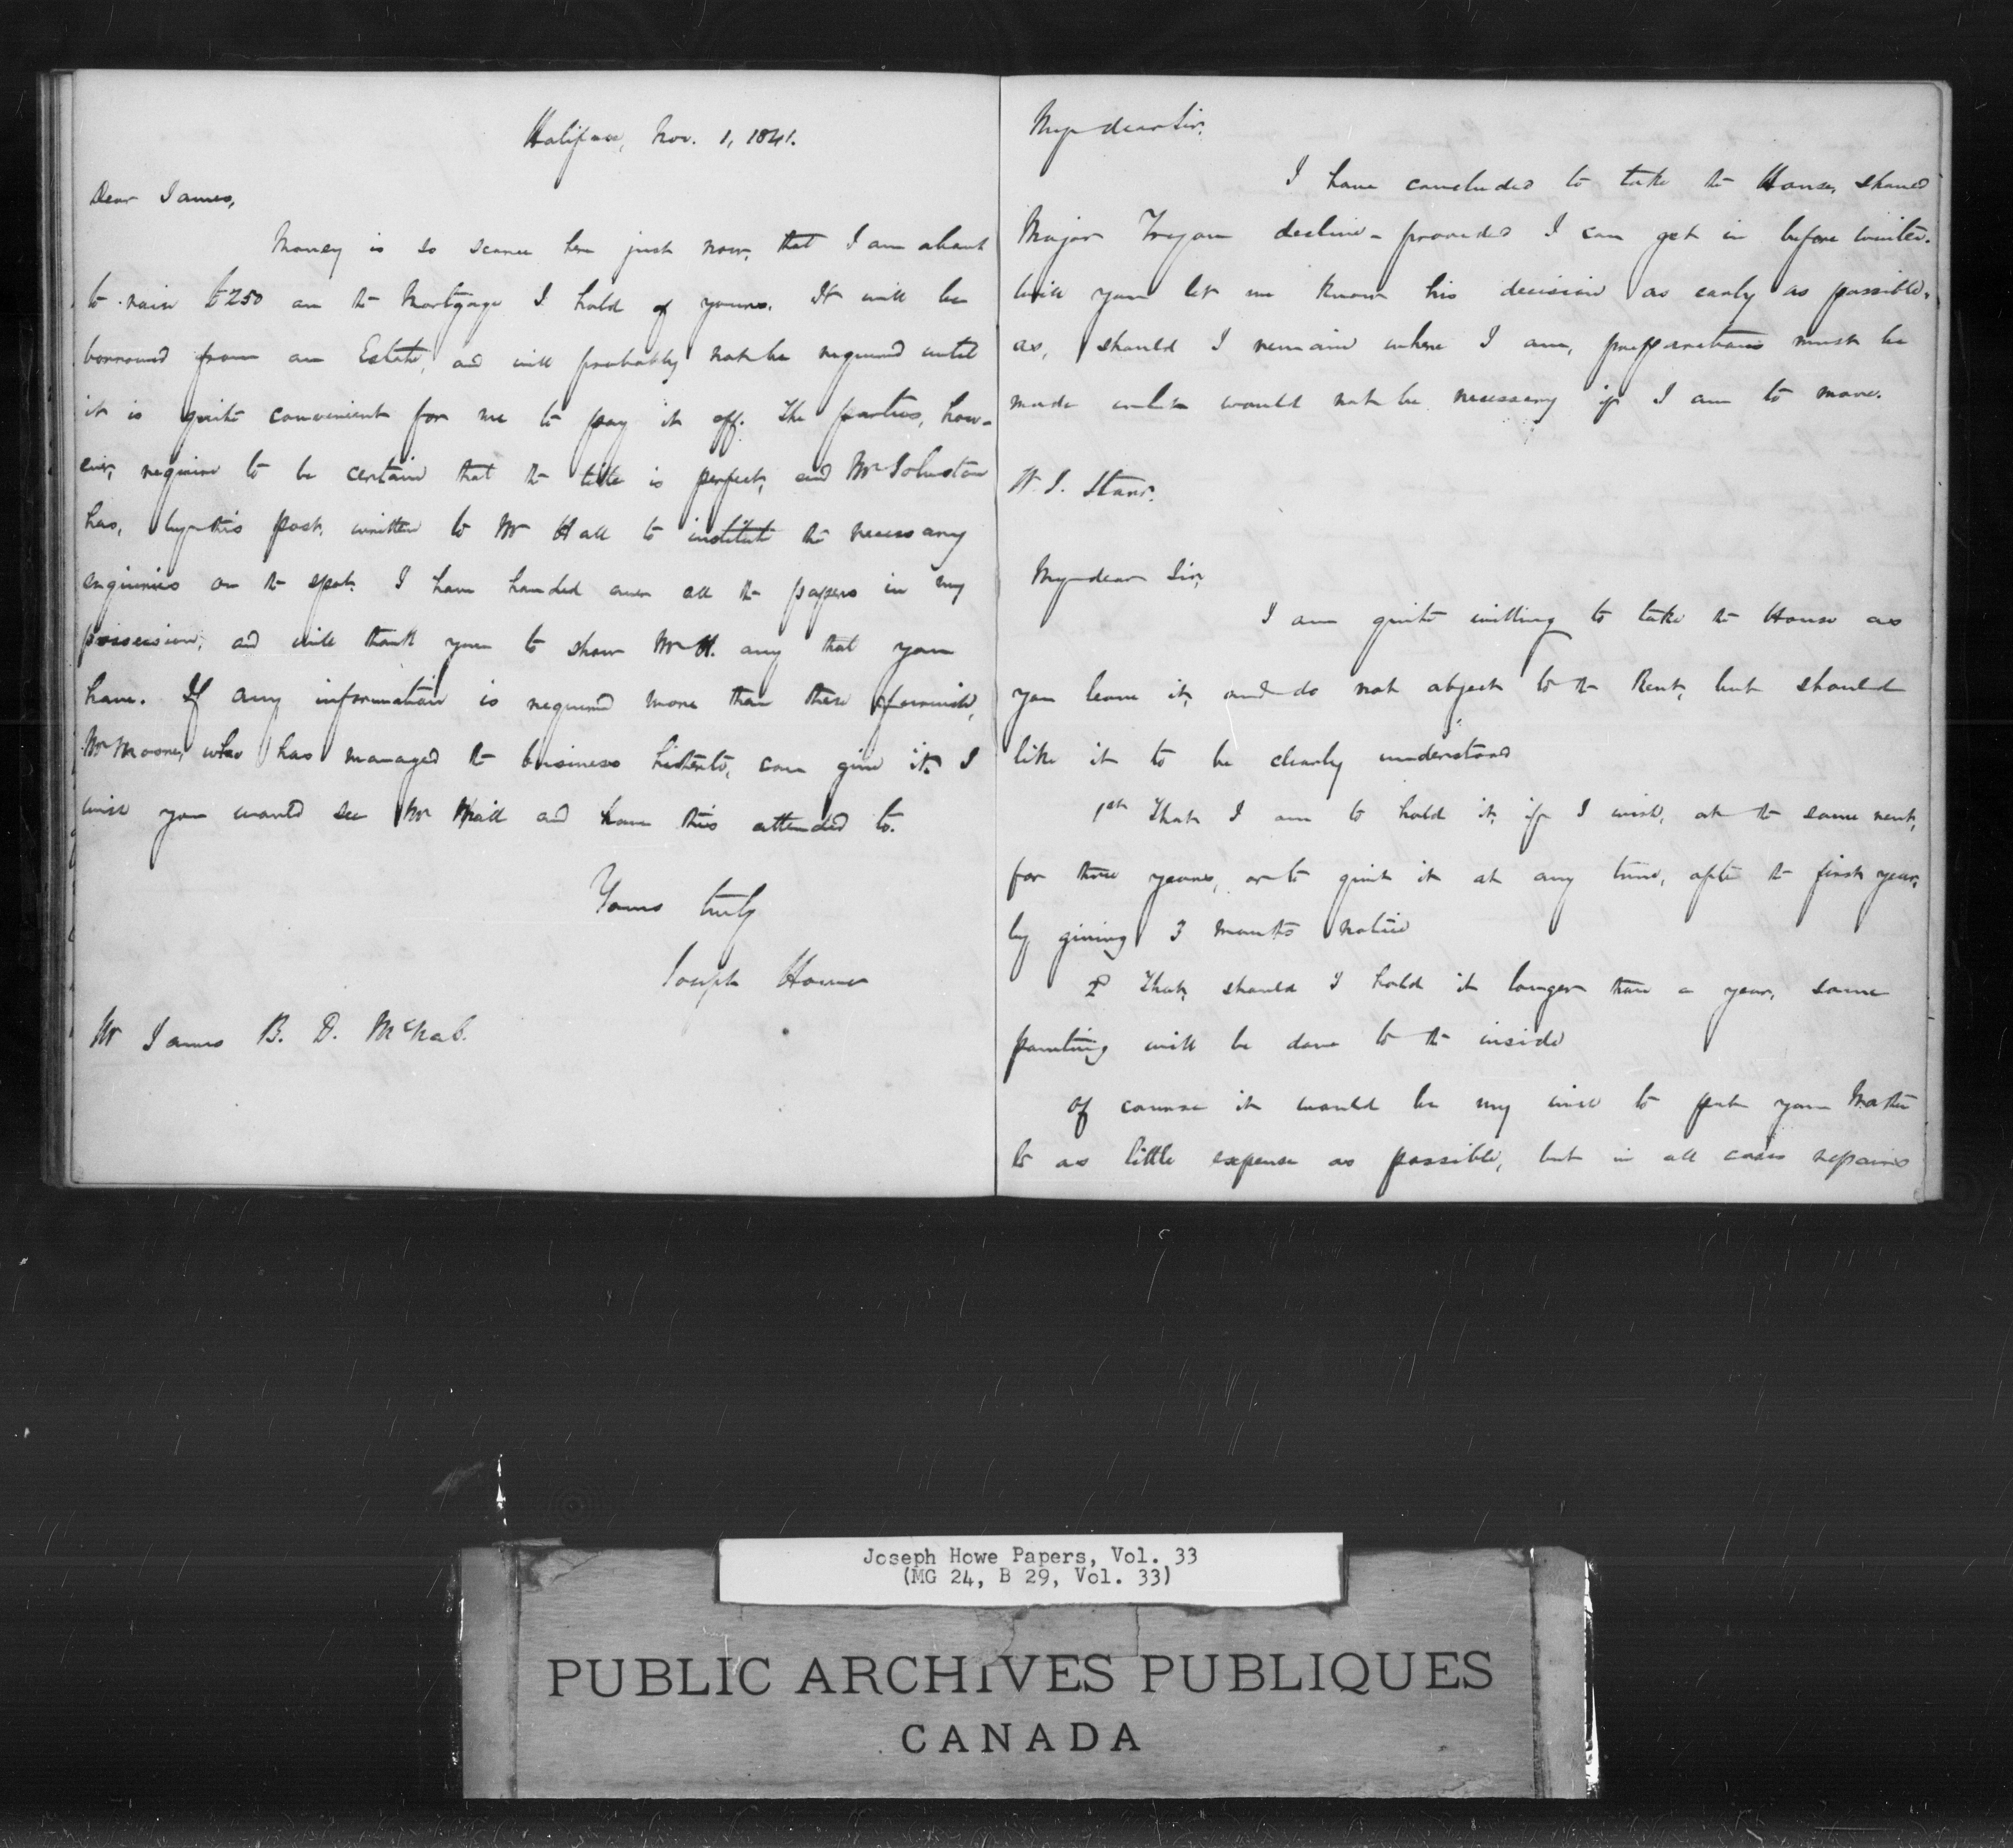 Halifax, Nov. 1, 1841.
Dear James,
Money is so scarce here just now, that I am about
to raise £250 on the Mortgage I hold of yours. It will be
borrowed from an Estate, and will probably not be required until
it is quite convenient for me to pay it off. The parties, how-
ever, require to be certain that the title is perfect, and Mr Johnston
has, by this post, written to Mr Hall to institute the necessary
enquiries on the spot. I have handed over all the papers in my
possession, and will thank you to show Mr H. any that you
have. If any information is required more than these furnish,
Mr Moore, who has managed the business hitherto, can give it. I
wish you would see Mr Hall and have this attended to.
Yours truly
Joseph Howe
Mr James B. D. McNab.
My dear Sir,
I have concluded to take the House, should
Major Tryon decline - provided I can get in before winter.
Will you let me know his decision as early as possible,
as, should I remain where I am, preparations must be
made which would not be necessary if I am to move.
W. J. Starr.
My dear Sir,
I am quite willing to take the House as
you leave it, and do not object to the Rent, but should
like it to be clearly understood
1st That I am to hold it, if I wish, at the same rent,
for three years, or to quit it at any time, after the first year,
by giving 3 months notice
2d That, should I hold it longer than a year, some
painting will be done to the inside
Of course it would be my wish to put your Mother
to as little expense as possible, but in all cases repairs
Joseph Howe Papers, Vol. 33
(MG 24, B 29, Vol. 33)
PUBLIC ARCHIVES PUBLIQUES
CANADA